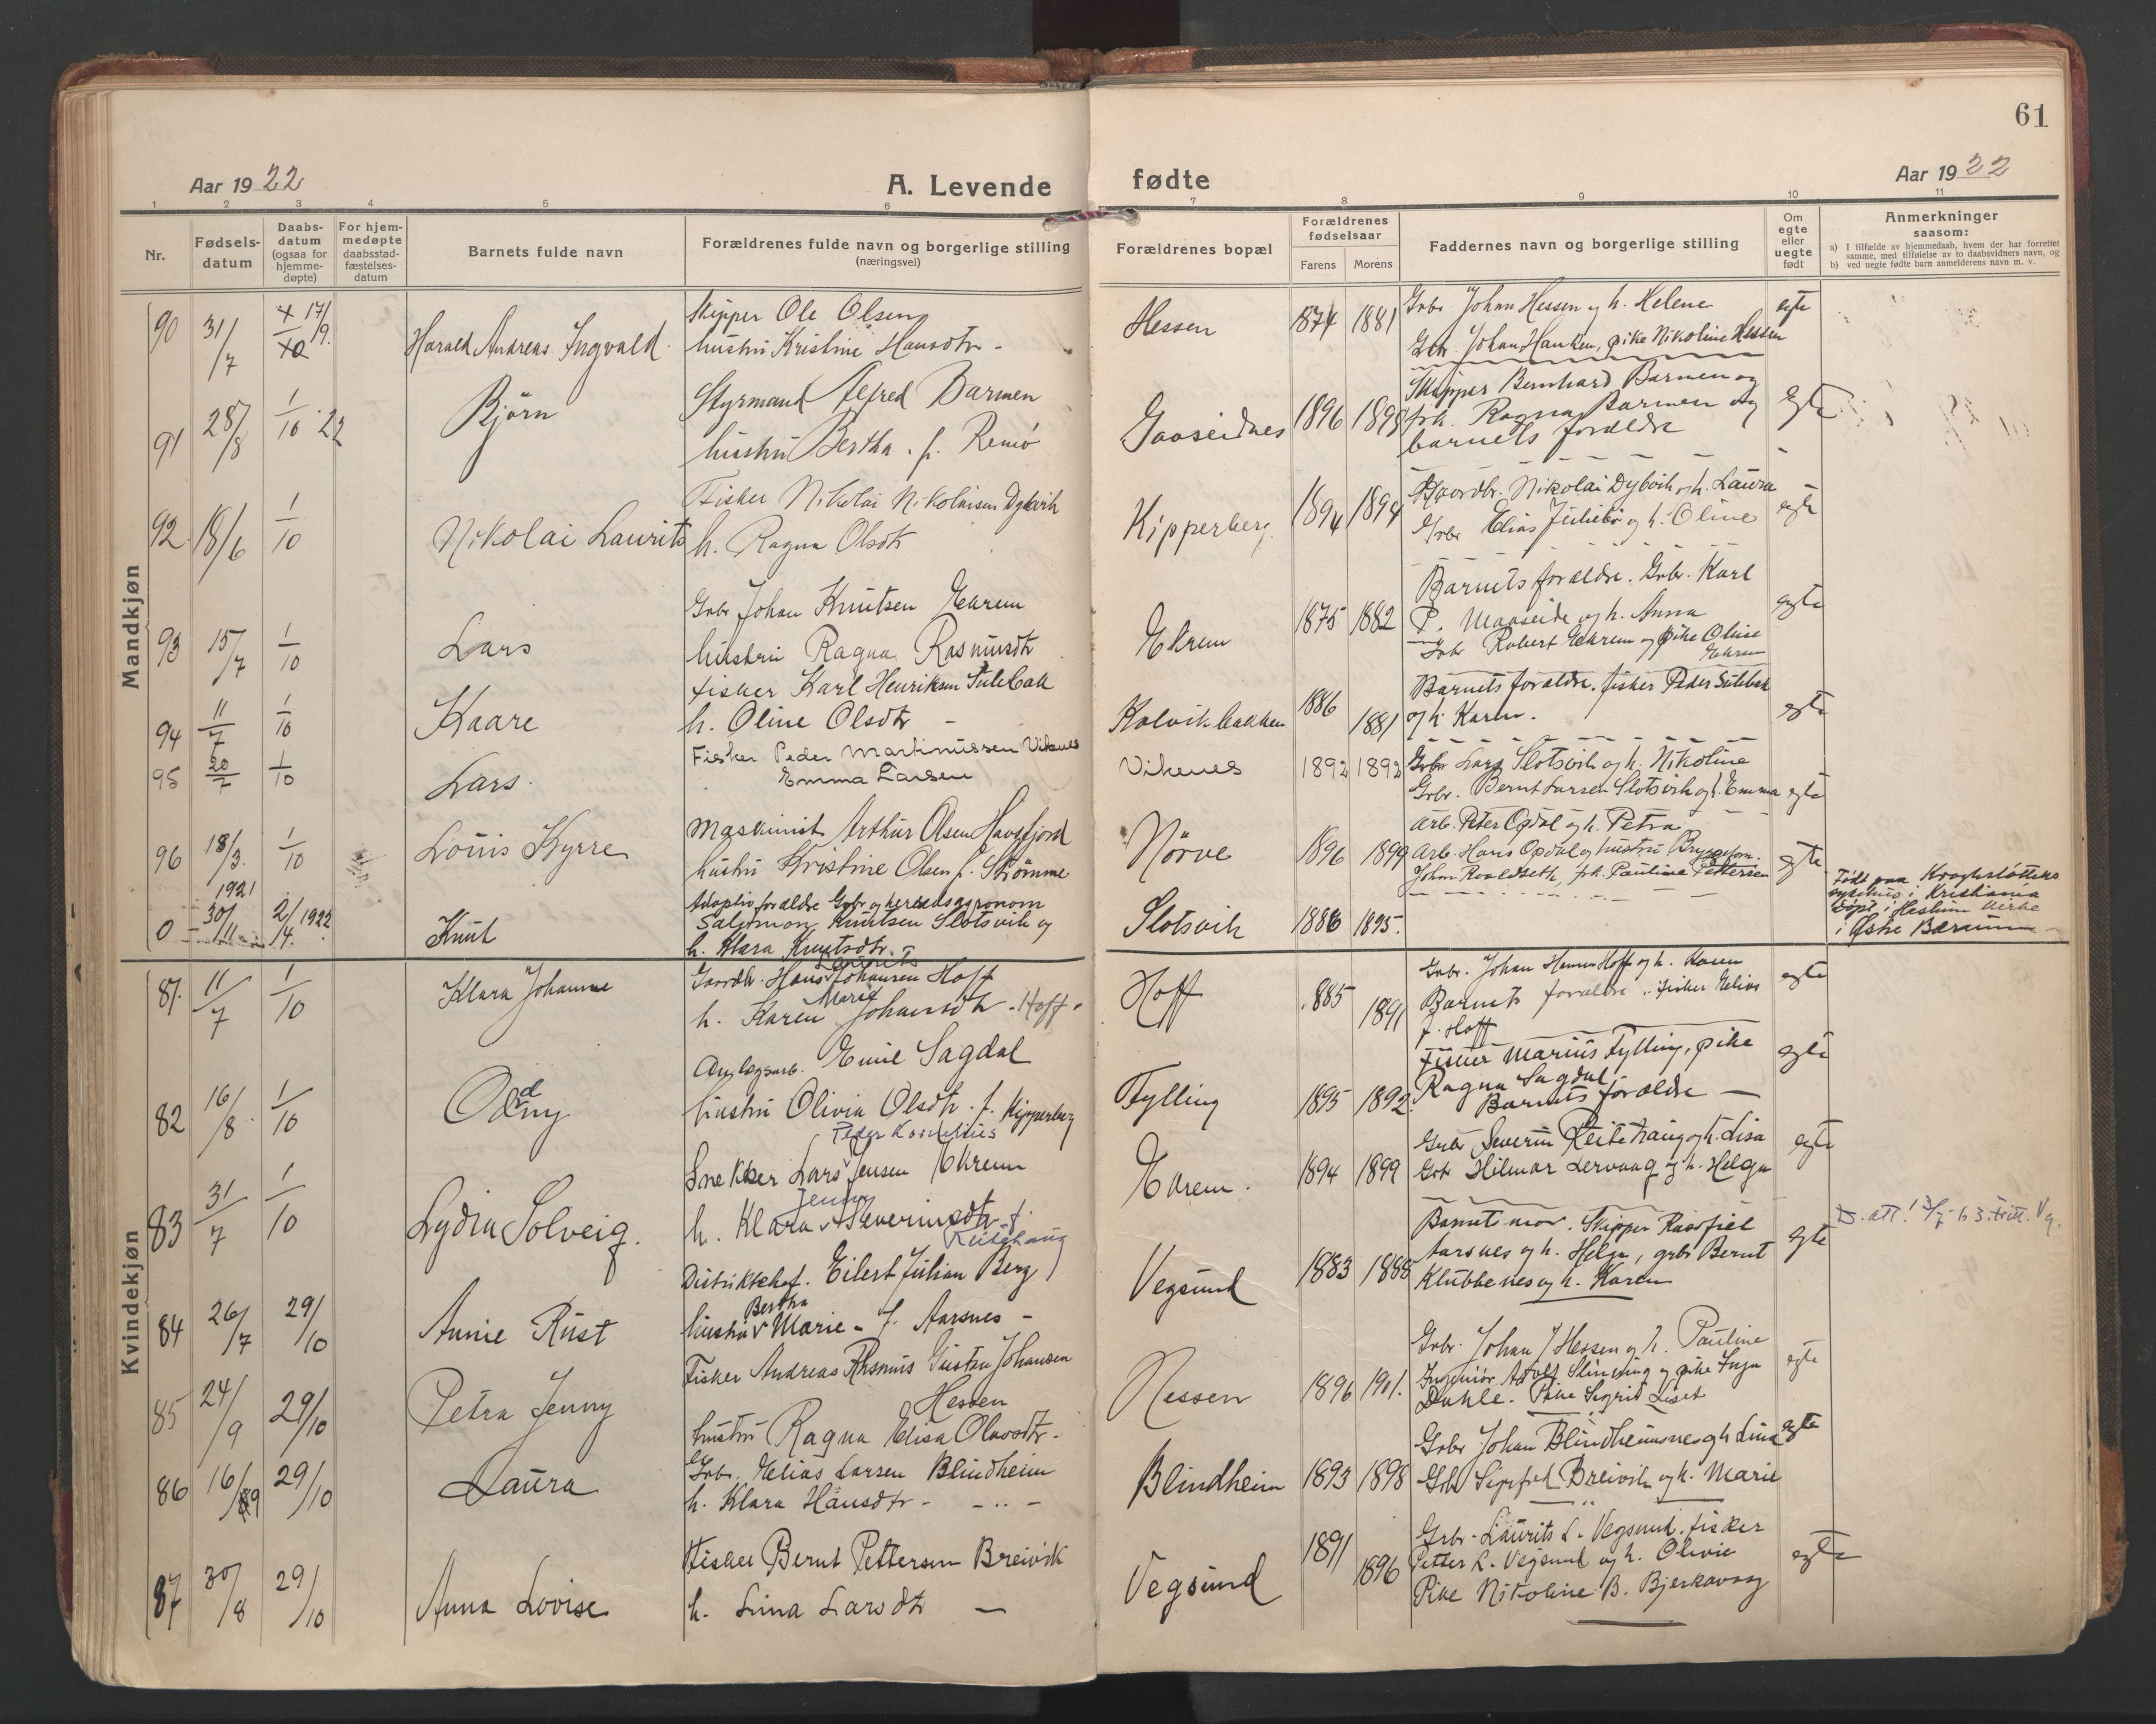 61
Aar 1922
A. Levende
fødte
Aar 1922
1 2 3 4 5 6 7 8 9 10 11
Nr.
Fødsels-
datum
Daabs-
datum
(ogsaa for
hjemme-
døpte)
For hjem-
medøpte
daabsstad-
fæstelses-
datum
Barnets fulde navn
Forældrenes fulde navn og borgerlige stilling
(næringsvei)
Forældrenes bopæl
Forældrenes
fødselsaar
Farens Morens
Faddernes navn og borgerlige stilling
Om
egte
eller
uegte
født
Anmerkninger
saasom:
a) I tilfælde av hjemmedaab, hvem der har forrettet
samme, med tilføielse av to daabsvidners navn, og
b) ved uegte fødte barn anmelderens navn m. v.
Mandkjøn
90 31/7 17/9. Harald Andreas Ingvald.
Skipper Ole Olsen
hustru Kristine Hansdtr -
Hessen 1874 1881
Grbr. Johan Hessen og h. Helene
Grbr. Johan Hanken, pike Nikoline Hessen
egte
91 28/8 1/10 22 Björn
Styrmand Alfred Barmen
hustru Bertha f. Remö
Gaaseidnes 1896 1898
Skipper Bernhard Barmen og
frk. Ragna Barmen og
barnets forældre
egte
92. 18/6 1/10 Nikolai Laurits
Fisker Nikolai Nikolaisen Dybvik
h. Ragna Olsdtr
Kipperberg 1894 1894
Gaardbr. Nikolai Dybvik og h. Laura
Grbr Elias Julebö og h. Oline
egte
93 15/7 1/10 Lars
Grbr Johan Knutsen Ekrem
hustru Ragna Rasmusdtr
Ekrem 1875 1882
Barnets forældre. Grbr. Karl
P. Maaseide og h. Anna
Grbr Robert Ekrem og pike Oline
Ekrem
egte
94 11/7 1/10 Kaare
fisker Karl Henriksen Sulebak
h. Oline Olsdtr -
Kolvikbakken 1886 1881
Barnets forældre. fisker Peder Sulebak
og h. Karen.
egte
95 20/7 1/10 Lars.
Fisker Peder Martinussen Viknes
Emma Larsen
Vikenes 1892 1892
Grbr Lars Slotsvik og h. Nikoline
Grbr. Bernt Larsen Slotsvik og h. Emma
egte
96 18/3. 1/10 Louis Kyrre
Maskinist Arthur Olsen Haugfjord
hustru Kristine Olsen f. Strömme
Nörve 1896 1899
Arb. Peter Opdal og h. Petra
Arb. Hans Opdal og hustru Bryggeform.
Johan Roaldseth, frk. Pauline Pettersen
egte
0 - 1921 30/11 2/4. 1922 Knut
Adoptivforældre Grbr og herredsagronom
Salomon Knutsen Slotsvik og
h. Klara Knutsdtr.
Slotsvik 1886 1895.
Født paa Kroghstøttens
sykehus i Kristiania
döpt i Haslum kirke
i Østre Bærum
Kvindekjøn
81. 11/7 1/10 Klara Johanne
Laurits
Gaardbr. Hans Johansen Hoff
Marie
h. Karen Johansdtr - Hoff.
Hoff 1885 1891
Grbr. Johan Hansen Hoff og h. Karen
Barnets forældre. Fisker Elias
J. Hoff
egte
82 16/8. 1/10 Oddny
Anlegsarb. Emil Sagdal
hustru Olivia Olsdtr. f. Kipperberg
Fylling 1895 1892.
Fisker Marius Fylling, pike
Ragna Sagdal
Barnets forældre -
egte
83 31/7 1/10 Lydia Solveig.
Peder Kornelius
Snekker Lars Jensen Ekrem
Jenny
h. Klara Severinsdtr f.
Reitehaug
Ekrem. 1894 1899
Grbr Severin Reitehaug og h. Lisa
Grbr Hilmar Lervaag og h. Helga
egte
84 26/7 29/10 Annie Rust
Distriktschef. Eilert Julian Berg
Bertha
hustru Marie - f. Aarsnes -
Vegsund 1883 1888
Barnets mor. Skipper
Aarsnes og h. Helga, grbr Bernt
Klubbenes og h. Karen
egte
85 24/9 29/10 Petra Jenny
Fisker Andreas Rasmus Gustav Johansen
Hessen
hustru Ragna Elisa Olavsdtr -
Hessen 1896 1901.
Grbr. Johan J Hessen og h. Pauline
Ingeniör Adolf Slinning og pike Inga
Dahle. Pike Sigrid Liset
egte
86 16/9 29/10 Laura
Grbr. Elias Larsen Blindheim
h. Klara Hansdtr - - .. -
Blindheim 1893 1898
Grbr Johan Blindheimsnes og h Lina
Grbr Sigfred Breivik og h. Marie
egte
87 30/8 29/10 Anna Lovise
Fisker Bernt Pettersen Breivik
h. Lina Larsdtr -
Vegsund 1891 1896
Grbr. Laurits L. Vegsund, fisker
Petter L. Vegsund og h. Olivie
Pike Nikoline B. Bjerkavaag
egte